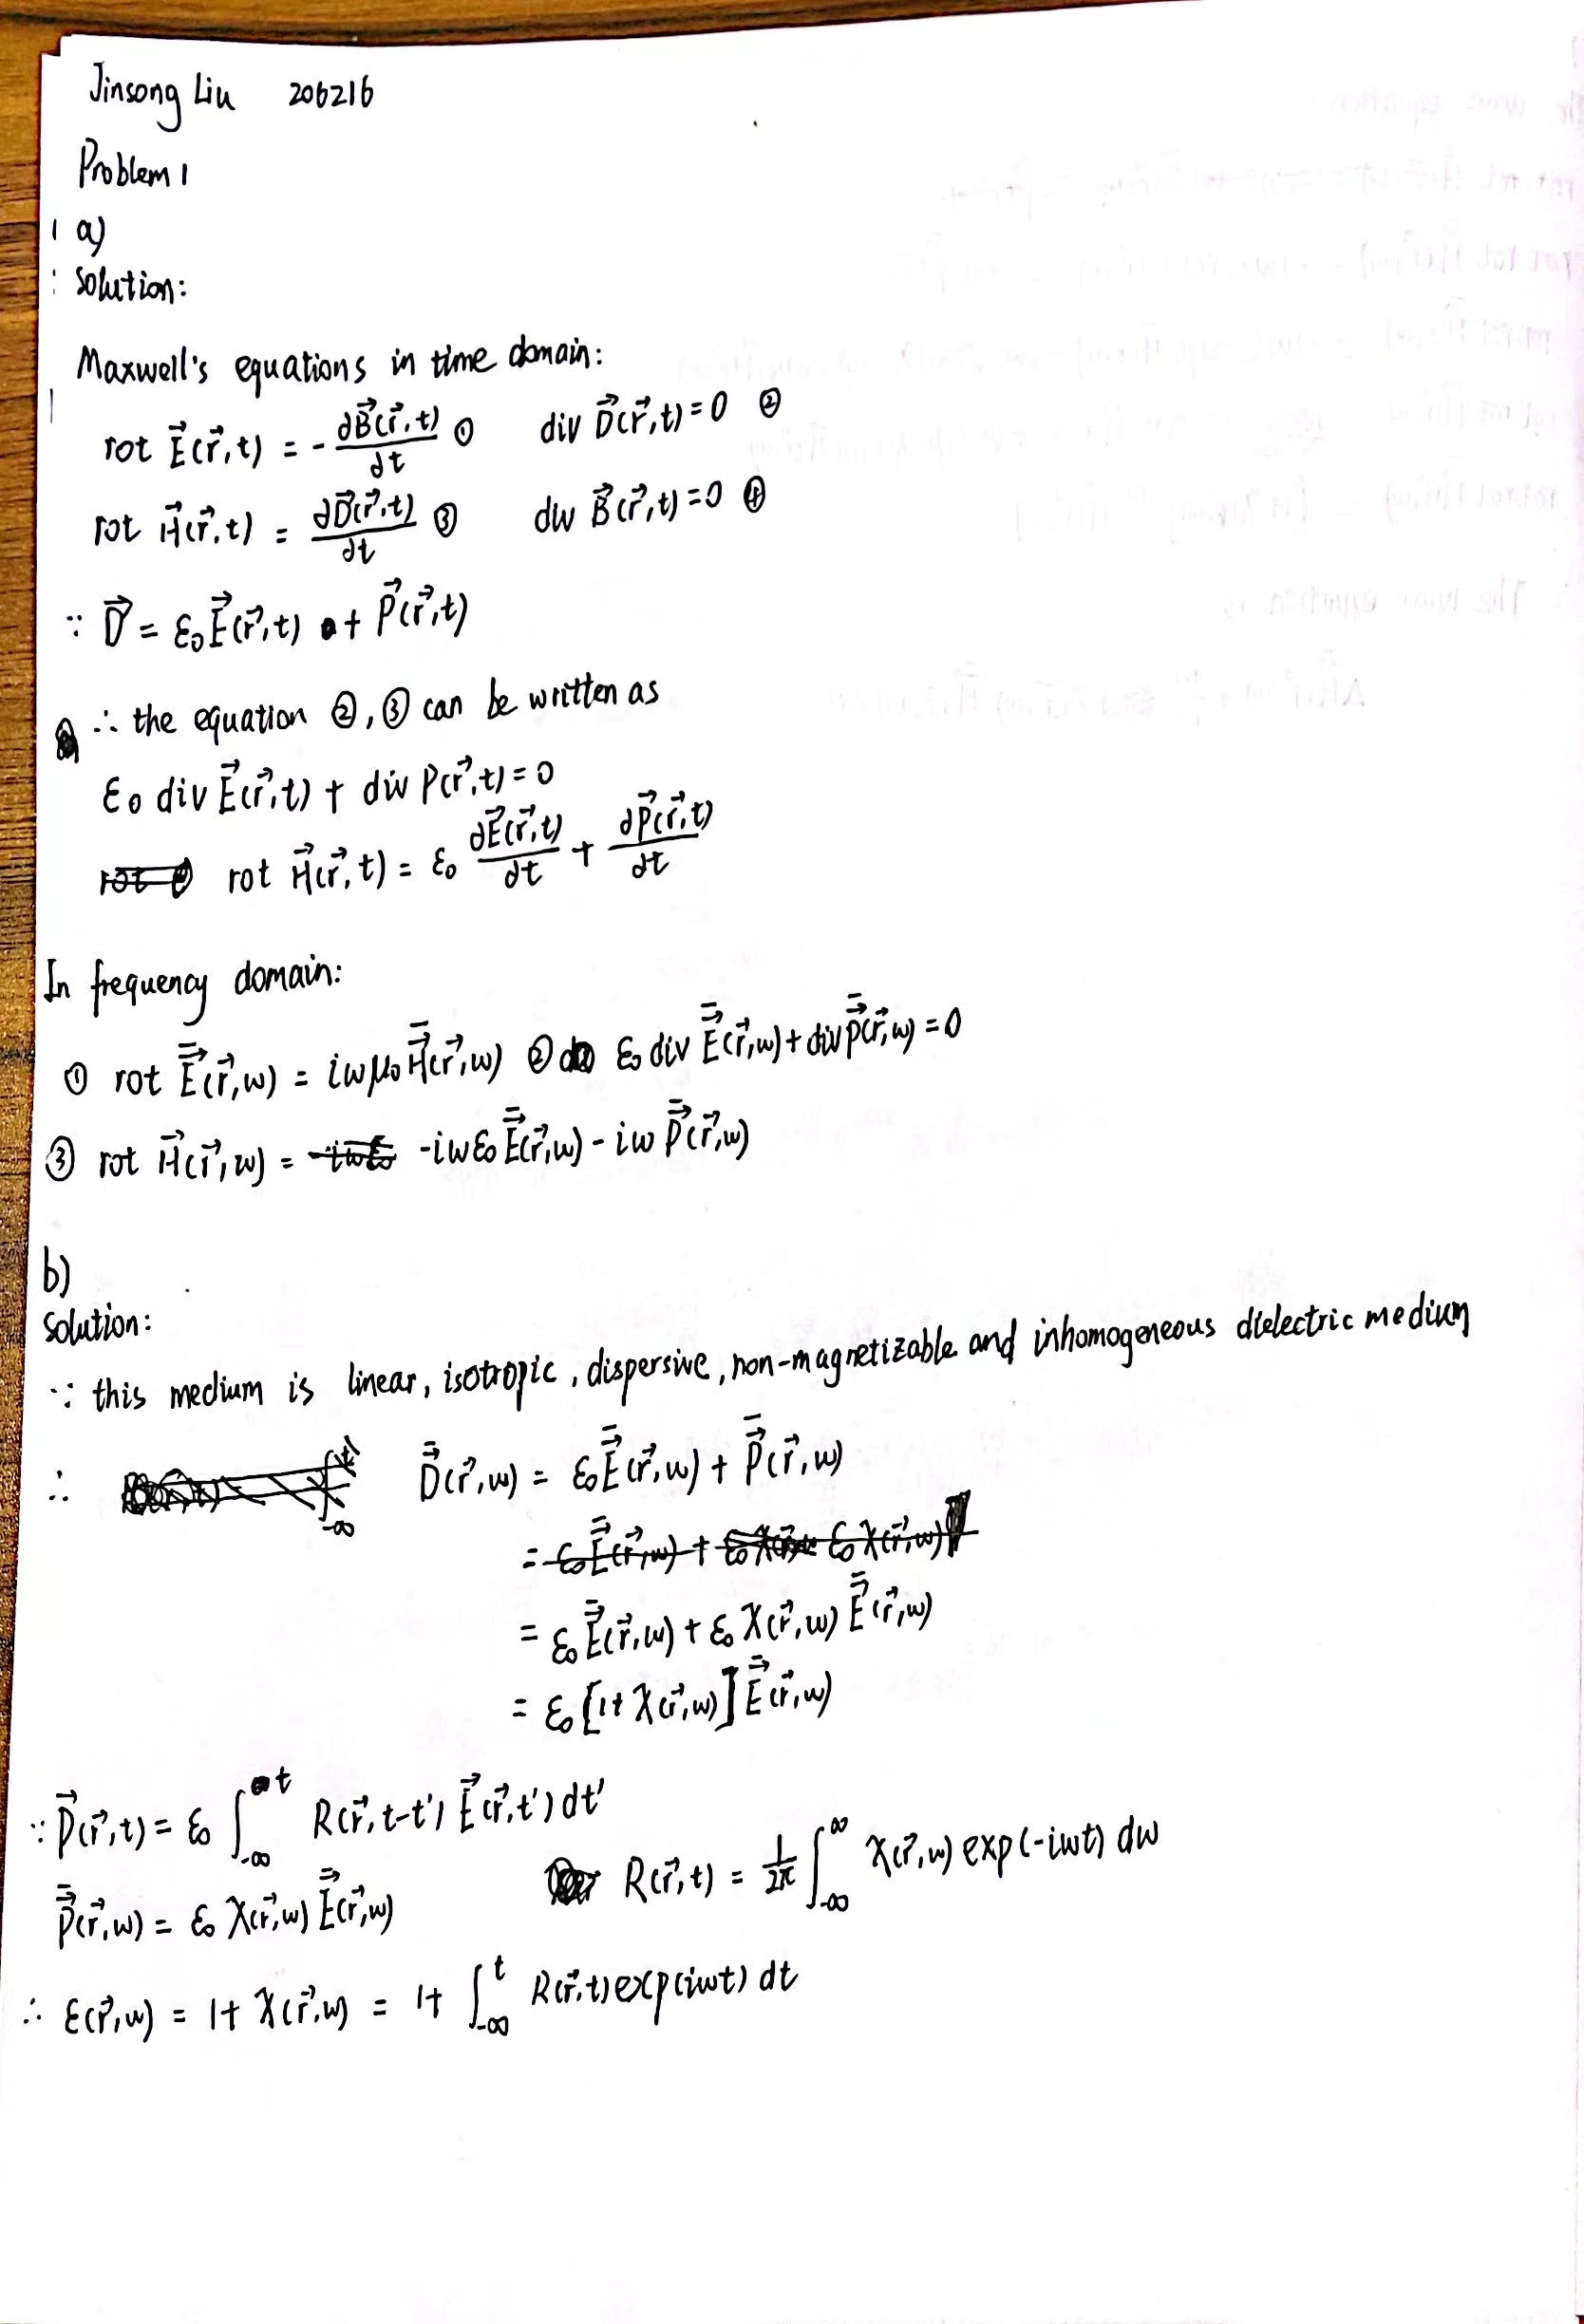 Jinsong Liu 206216
Problem 1
a)
Solution:
Maxwell's equations in time domain:
rot E⃗(r⃗,t) = -∂B⃗(r⃗,t)/∂t ① div D⃗(r⃗,t)=0 ②
rot H⃗(r⃗,t) = ∂D⃗(r⃗,t)/∂t ③ div B⃗(r⃗,t)=0 ④
∵ D⃗ = ε₀E⃗(r⃗,t) + P⃗(r⃗,t)
∴ the equation ②,③ can be written as
ε₀ div E⃗(r⃗,t) + div P(r⃗,t)=0
rot H⃗(r⃗,t) = ε₀ ∂E⃗(r⃗,t)/∂t + ∂P⃗(r⃗,t)/∂t
In frequency domain:
① rot E⃗̄(r⃗,w) = iwμ₀H⃗̄(r⃗,w) ② ε₀ div E⃗̄(r⃗,w)+div P⃗̄(r⃗,w)=0
③ rot H⃗(r⃗,w) = -iwε₀E⃗̄(r⃗,w) - iw P⃗̄(r⃗,w)
b)
Solution:
∵ this medium is linear, isotropic, dispersive, non-magnetizable and inhomogeneous dielectric medium
∴ D⃗̄(r⃗,w) = ε₀E⃗̄(r⃗,w) + P⃗̄(r⃗,w)
= ε₀E⃗̄(r⃗,w) + ε₀ χ(r⃗,w) E⃗̄(r⃗,w)
= ε₀ [1+χ(r⃗,w)] E⃗̄(r⃗,w)
∵ P⃗(r⃗,t) = ε₀ ∫_{-∞}^{t} R(r⃗,t-t') E⃗(r⃗,t') dt'
R(r⃗,t) = 1/2π ∫_{-∞}^{∞} χ(r⃗,w) exp(-iwt) dw
P⃗̄(r⃗,w) = ε₀ χ(r⃗,w) E⃗̄(r⃗,w)
∴ ε(r⃗,w) = 1+ χ(r⃗,w) = 1+ ∫_{-∞}^{t} R(r⃗,t)exp(iwt) dt